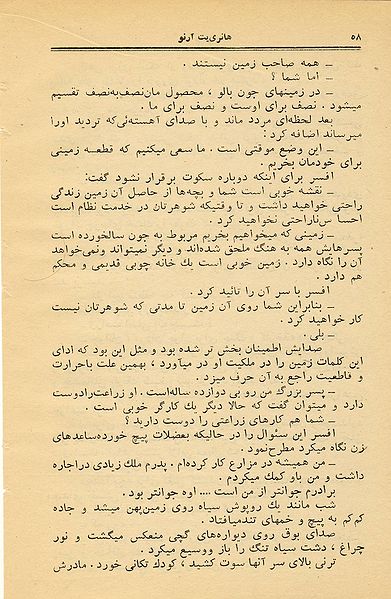 ۵۸
هانری‌یت آرنو
ـ همه صاحب زمین نیستند .
ـ اما شما ؟
ـ در زمینهای چون بالو ، محصول مان‌نصف‌به‌نصف تقسیم
میشود . نصف برای اوست و نصف برای ما .
بعد لحظه‌ای مردد ماند و با صدای آهسته‌ئی‌که تردید اورا
میرساند اضافه کرد :
ـ این وضع موقتی است . ما سعی میکنیم که قطعه زمینی
برای خودمان بخریم .
افسر برای اینکه دوباره سکوت برقرار نشود گفت:
ـ نقشه خوبی است شما و بچه‌ها از حاصل آن زمین زندگی
راحتی خواهید داشت و تا وقتیکه شوهرتان در خدمت نظام است
احساس‌ناراحتی نخواهید کرد .
ـ زمینی که میخواهیم بخریم مربوط به چون سالخورده است
پسرهایش همه به هنگ ملحق شده‌اند و دیگر نمیتواند ونمی‌خواهد
آن را نگاه دارد . زمین خوبی است یك خانه چوبی قدیمی و محکم
هم دارد .
افسر با سر آن را تائید کرد .
ـ بنابراین شما روی آن زمین تا مدتی که شوهرتان نیست
کار خواهید کرد .
ـ بلی .
صدایش اطمینان بخش تر شده بود و مثل این بود که ادای
این کلمات زمین را در ملکیت او در میآورد ، بهمین علت باحرارت
و قاطعیت راجع به آن حرف میزد .
ـ پسر بزرگ من رو بی دوازده ساله‌است . او زراعت‌رادوست
دارد و میتوان گفت که حالا دیگر یك کارگر خوبی است .
ـ شما هم کارهای زراعتی را دوست دارید ؟
افسر این سئوال را در حالیکه بعضلات پیچ خورده‌ساعدهای
زن نگاه میکرد مطرح‌نمود .
ـ من همیشه در مزارع کار کرده‌ام . پدرم ملك زیادی دراجاره
داشت و من باو کمك میکردم .
برادرم جوانتر از من است .... اوه جوانتر بود .
شب مانند یك روپوش سیاه روی زمین‌پهن میشد و جاده
کم‌کم به پیچ و خمهای تندمیافتاد .
صدای بوق روی دیواره‌های گچی منعکس میگشت و نور
چراغ ، دشت سیاه تنگ را باز ووسیع میکرد .
ترنی بالای سر آنها سوت کشید ، کودك تکانی خورد . مادرش